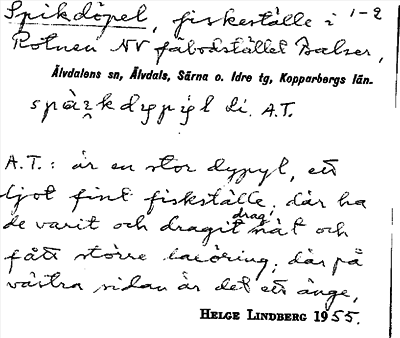 Spikdöpel, fiskeställe i 1-2
Rotnen NV fäbodstället Balser,
Älvdalens sn, Älvdals, Särna o. Idre tg, Kopparbergs län.
di. A.T.
A.T.: är en stor dypyl, ett
ljot fint fiskställe, där ha
de varit och dragit nät och
drag!
fått större laxöring, där på
västra sidan är det ett änge,
HELGE LINDBERG 1955.